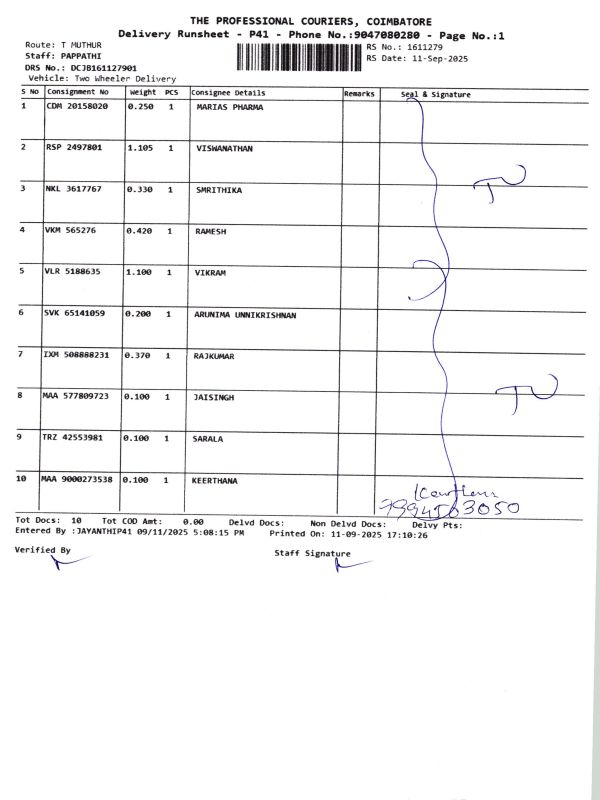 THE PROFESSIONAL COURIERS, COIMBATORE
Delivery Runsheet - P41 - Phone No.:9047080280 - Page No.:1
Route: T MUTHUR
RS No.: 1611279
Staff: PAPPATHI
RS Date: 11-Sep-2025
DRS No.: DCJB161127901
Vehicle: Two Wheeler Delivery
S No Consignment No Weight PCS Consignee Details Remarks Seal & Signature
1 CDM 20158020 0.250 1 MARIAS PHARMA
2 RSP 2497801 1.105 1 VISWANATHAN
3 NKL 3617767 0.330 1 SMRITHIKA
4 VKM 565276 0.420 1 RAMESH
5 VLR 5188635 1.100 1 VIKRAM
6 SVK 65141059 0.200 1 ARUNIMA UNNIKRISHNAN
7 IXM 508888231 0.370 1 RAJKUMAR
8 MAA 577809723 0.100 1 JAISINGH
9 TRZ 42553981 0.100 1 SARALA
10 MAA 9000273538 0.100 1 KEERTHANA
Tot Docs: 10 Tot COD Amt: 0.00 Delvd Docs: Non Delvd Docs: Delvy Pts:
Entered By :JAYANTHIP41 09/11/2025 5:08:15 PM Printed On: 11-09-2025 17:10:26
Verified By Staff Signature